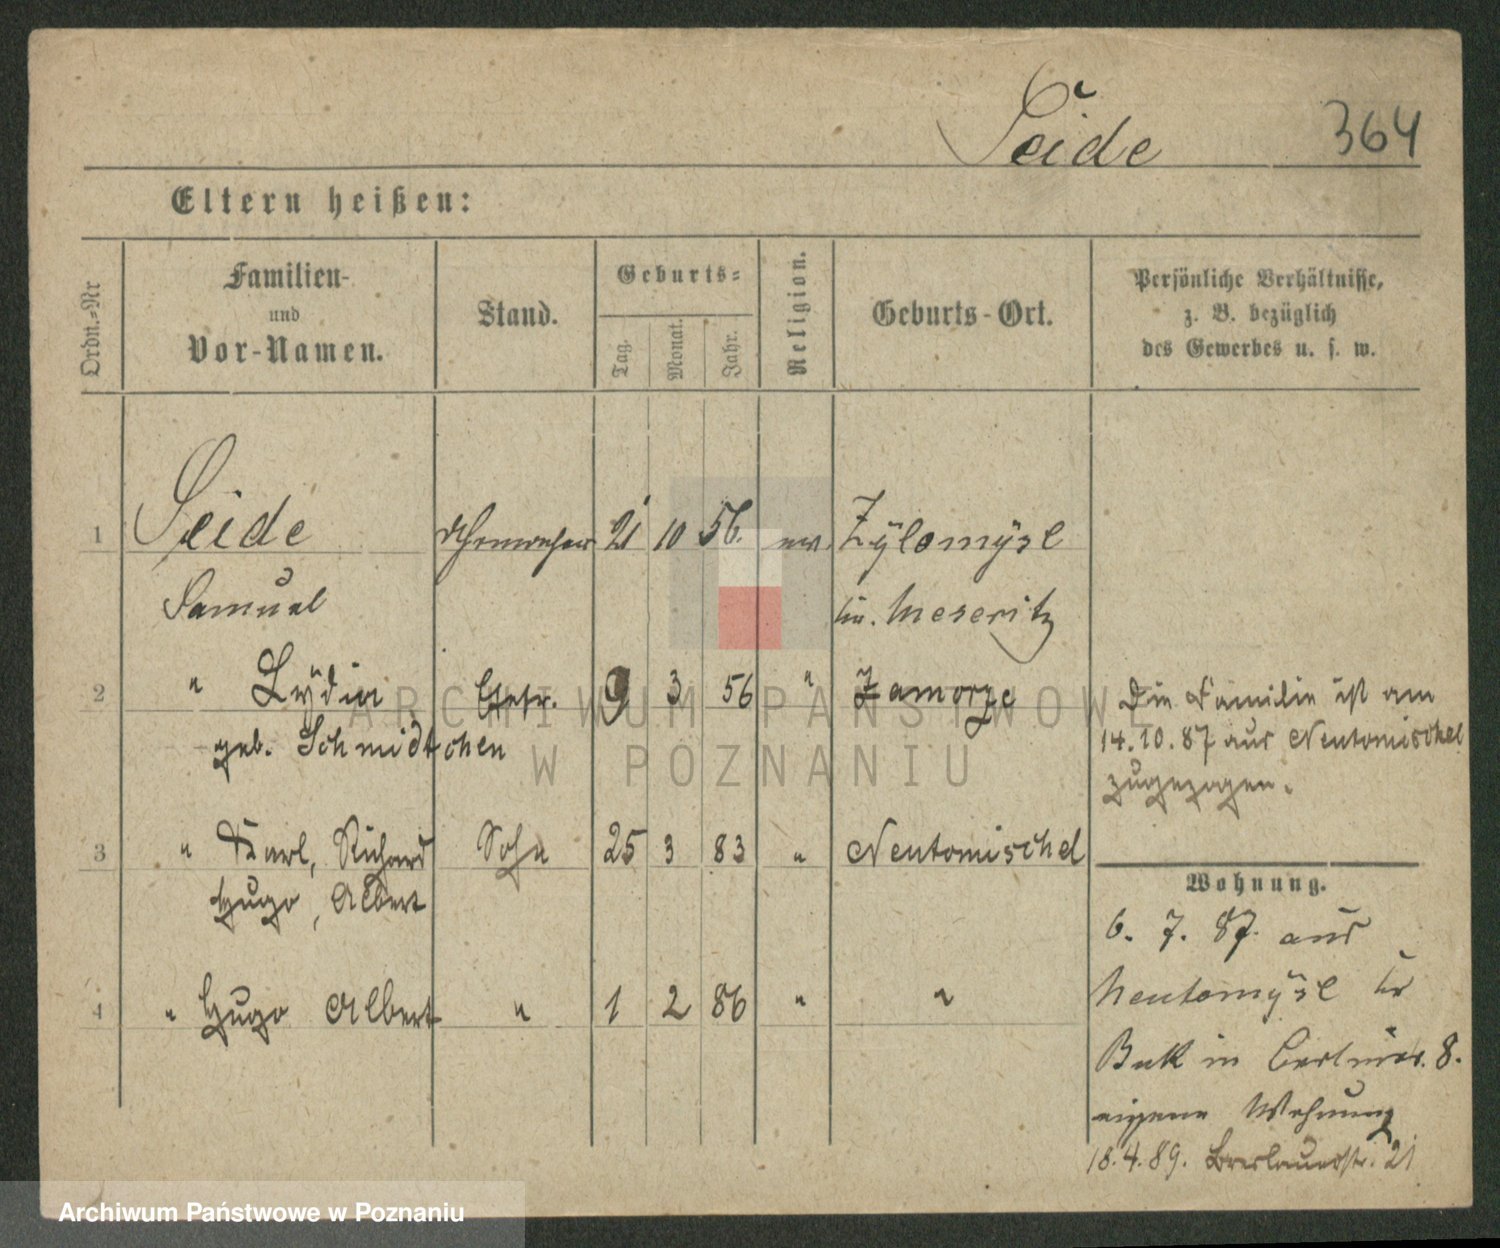 Seide 364
Eltern heißen:
Ordn.-Nr
Familien-
und
Vor-Namen.
Stand.
Geburts-
Tag.
Monat.
Jahr.
Religion.
Geburts-Ort.
Persönliche Verhältnisse,
z. B. bezüglich
des Gewerbes u. s. w.
1 Seide Uhrmacher 21 10 56. ev. Zylomysl
Samuel Kr. Meseritz
2 " Lydia Ehefr. 9 3 56 " Zamorze
geb. Schmidtchen
Die Familie ist am
14.10.87 aus Neutomischel
zugezogen.
3 " Karl, Richard Sohn 25 3 83 " Neutomischel
Hugo, Albert
4 " Hugo Albert " 1 2 86 " "
Wohnung.
6. 7. 87. aus
Neutomysl Kr
Buk in Berliner. 8.
eigene Wohnung
18.4.89. Breslauerstr. 21
ARCHIWUM PAŃSTWOWE
W POZNANIU
Archiwum Państwowe w Poznaniu